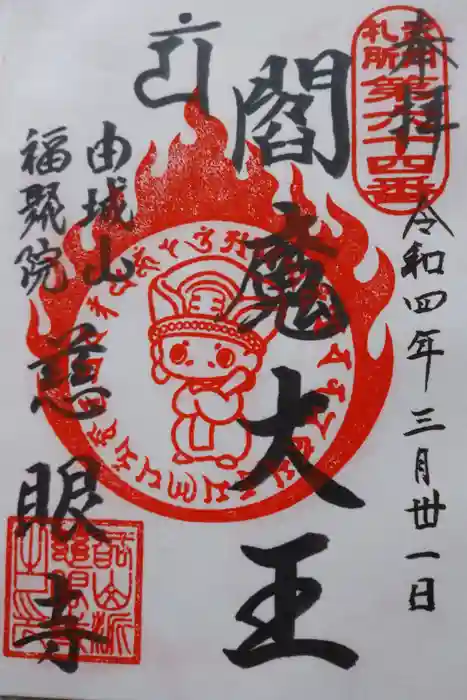 奉拝
武相
札所
第六十四番
令和四年三月卅一日
閻魔大王
由城山
福聚院
慈眼寺